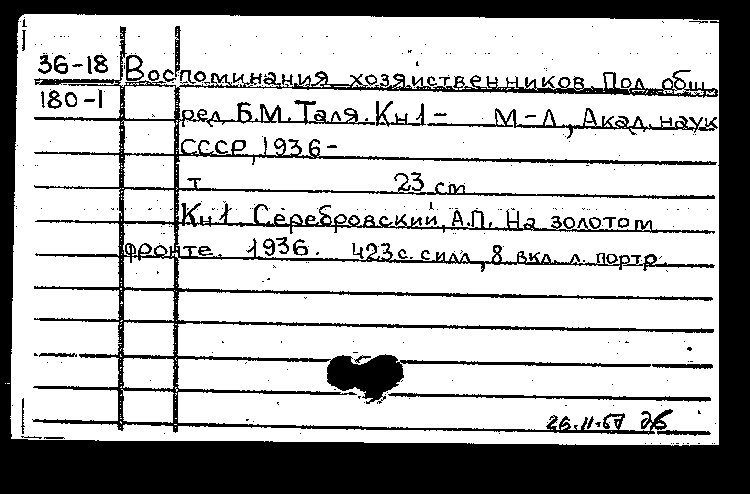 36-18 Воспоминания хозяйственников. Под общ.
180-1 ред. Б.М. Таля. Кн 1 - М-Л, Акад. наук
СССР, 1936-
т 23 cm
Кн 1. Серебровский, А.П. На золотом
фронте. 1936. 423 с. с илл, 8 вкл. л. портр.
26.11.67